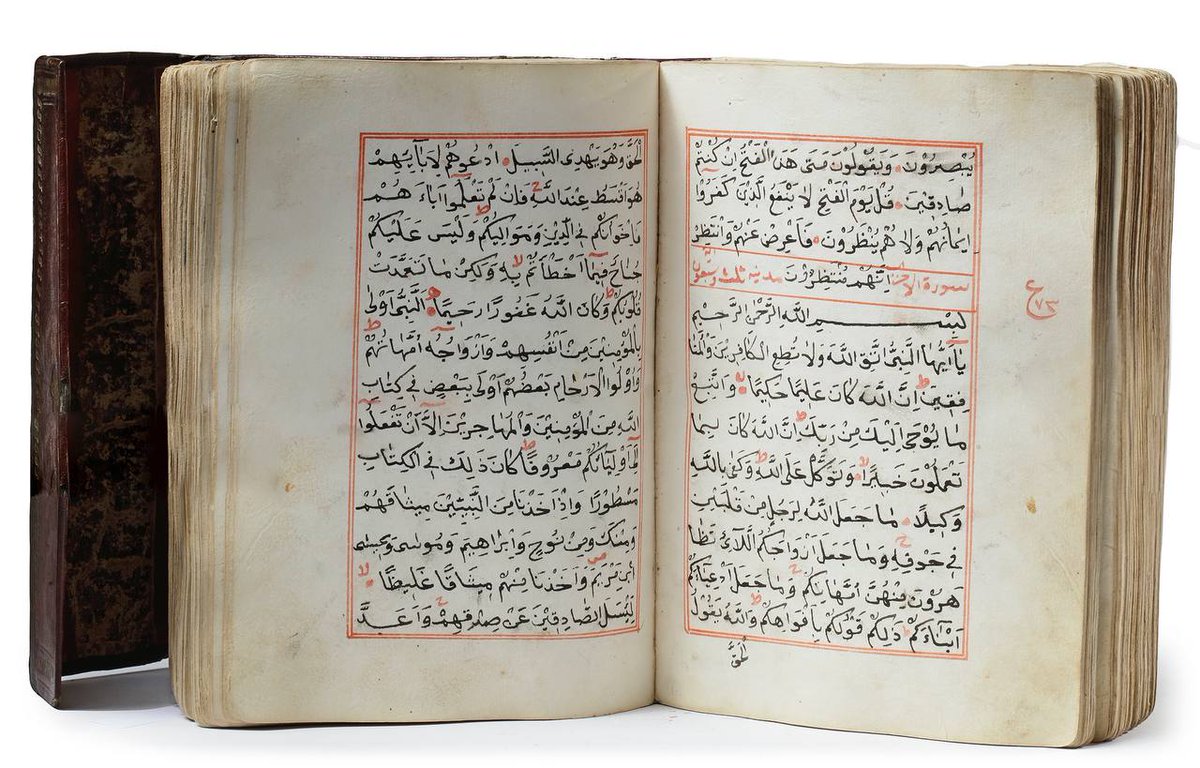 يُبْصِرُونَ وَيَقُولُونَ مَتَى هَذَا الْفَتْحُ اِنْ كُنْتُمْ
صَادِقِينَ قُلْ يَوْمَ الْفَتْحِ لَا يَنْفَعُ الَّذِينَ كَفَرُوا
اِيمَانُهُمْ وَلَا هُمْ يُنْظَرُونَ فَاَعْرِضْ عَنْهُمْ وَانْتَظِرْ
سورة الاحزاب اِنَّهُمْ مُنْتَظِرُونَ مدنية ثلث وسبعون اية
بِسْمِ اللَّهِ الرَّحْمٰنِ الرَّحِيمِ
يَا اَيُّهَا النَّبِىُّ اتَّقِ اللَّهَ وَلَا تُطِعِ الْكَافِرِينَ وَالْمُنَا
فِقِينَ اِنَّ اللَّهَ كَانَ عَلِيمًا حَكِيمًا وَاتَّبِعْ
مَا يُوحَى اِلَيْكَ مِنْ رَبِّكَ اِنَّ اللَّهَ كَانَ بِمَا
تَعْمَلُونَ خَبِيرًا وَتَوَكَّلْ عَلَى اللَّهِ وَكَفَى بِاللَّهِ
وَكِيلًا مَا جَعَلَ اللَّهُ لِرَجُلٍ مِنْ قَلْبَيْنِ
فِى جَوْفِهِ وَمَا جَعَلَ اَزْوَاجَكُمُ اللَّائِى تُظَا
هِرُونَ مِنْهُنَّ اُمَّهَاتِكُمْ وَمَا جَعَلَ اَدْعِيَاءَكُمْ
اَبْنَاءَكُمْ ذَلِكُمْ قَوْلُكُمْ بِاَفْوَاهِكُمْ وَاللَّهُ يَقُولُ
الْحَقَّ
الْحَقَّ وَهُوَ يَهْدِى السَّبِيلَ اُدْعُوهُمْ لِاٰبَائِهِمْ
هُوَ اَقْسَطُ عِنْدَ اللَّهِ فَاِنْ لَمْ تَعْلَمُوا اٰبَاءَهُمْ
فَاِخْوَانُكُمْ فِى الدِّينِ وَمَوَالِيكُمْ وَلَيْسَ عَلَيْكُمْ
جُنَاحٌ فِيمَا اَخْطَاْتُمْ بِهِ وَلَكِنْ مَا تَعَمَّدَتْ
قُلُوبُكُمْ وَكَانَ اللَّهُ غَفُورًا رَحِيمًا اَلنَّبِىُّ اَوْلَى
بِالْمُؤْمِنِينَ مِنْ اَنْفُسِهِمْ وَاَزْوَاجُهُ اُمَّهَاتُهُمْ
وَاُولُوا الْاَرْحَامِ بَعْضُهُمْ اَوْلَى بِبَعْضٍ فِى كِتَابِ
اللَّهِ مِنَ الْمُؤْمِنِينَ وَالْمُهَاجِرِينَ اِلَّا اَنْ تَفْعَلُوا
اِلَى اَوْلِيَائِكُمْ مَعْرُوفًا كَانَ ذَلِكَ فِى الْكِتَابِ
مَسْطُورًا وَاِذْ اَخَذْنَا مِنَ النَّبِيِّينَ مِيثَاقَهُمْ
وَمِنْكَ وَمِنْ نُوحٍ وَاِبْرَاهِيمَ وَمُوسَى وَعِيسَى
ابْنِ مَرْيَمَ وَاَخَذْنَا مِنْهُمْ مِيثَاقًا غَلِيظًا
لِيَسْئَلَ الصَّادِقِينَ عَنْ صِدْقِهِمْ وَاَعَدَّ